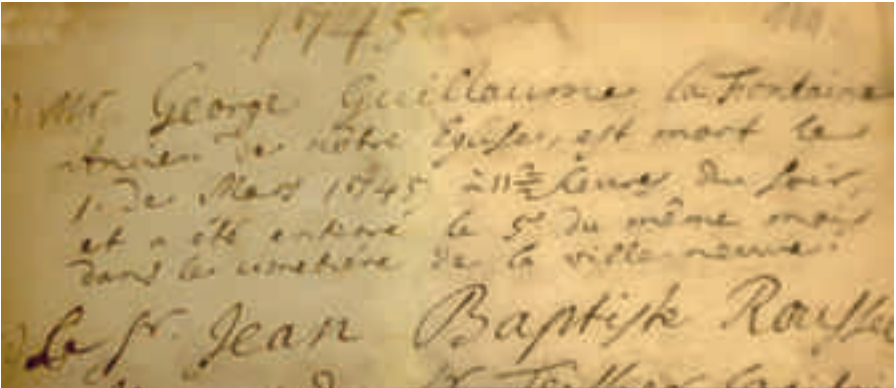 1745
Mr. George Guillaume la Fontaine
Ancien de nôtre Eglise, est mort le
1. de Mars 1745 à 11 heures du soir,
et a été enterré le 5e du même mois
dans le cimetière de la ville neuve.
Le Sr. Jean Baptiste